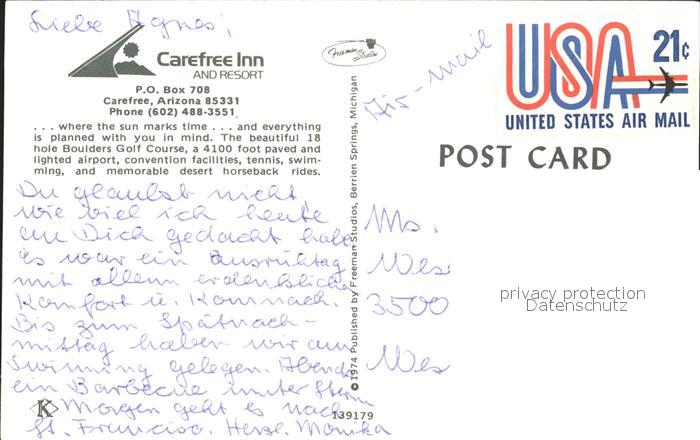 Liebe Agnes,
Carefree Inn
AND RESORT
P.O. Box 708
Carefree, Arizona 85331
Phone (602) 488-3551
. . . where the sun marks time . . . and everything
is planned with you in mind. The beautiful 18
hole Boulders Golf Course, a 4100 foot paved and
lighted airport, convention facilities, tennis, swim-
ming, and memorable desert horseback rides.
Du glaubst nicht,
wie viel ich heute
an Dich gedacht habe
es war ein Ausruhtag
mit allem erdenklichen
Komfort u.
Bis zum Spätnach-
mittag haben wir am
Swimming gelegen. Abends
ein Barbecue unter Stern
K Morgen geht es nach
St. Francisco. Herzl. Monika
139179
© 1974 Published by Freeman Studios, Berrien Springs, Michigan
Freeman Studios
Air-Mail
USA 21¢
UNITED STATES AIR MAIL
POST CARD
Ms.
Wes
3500
Wes
privacy protection
Datenschutz